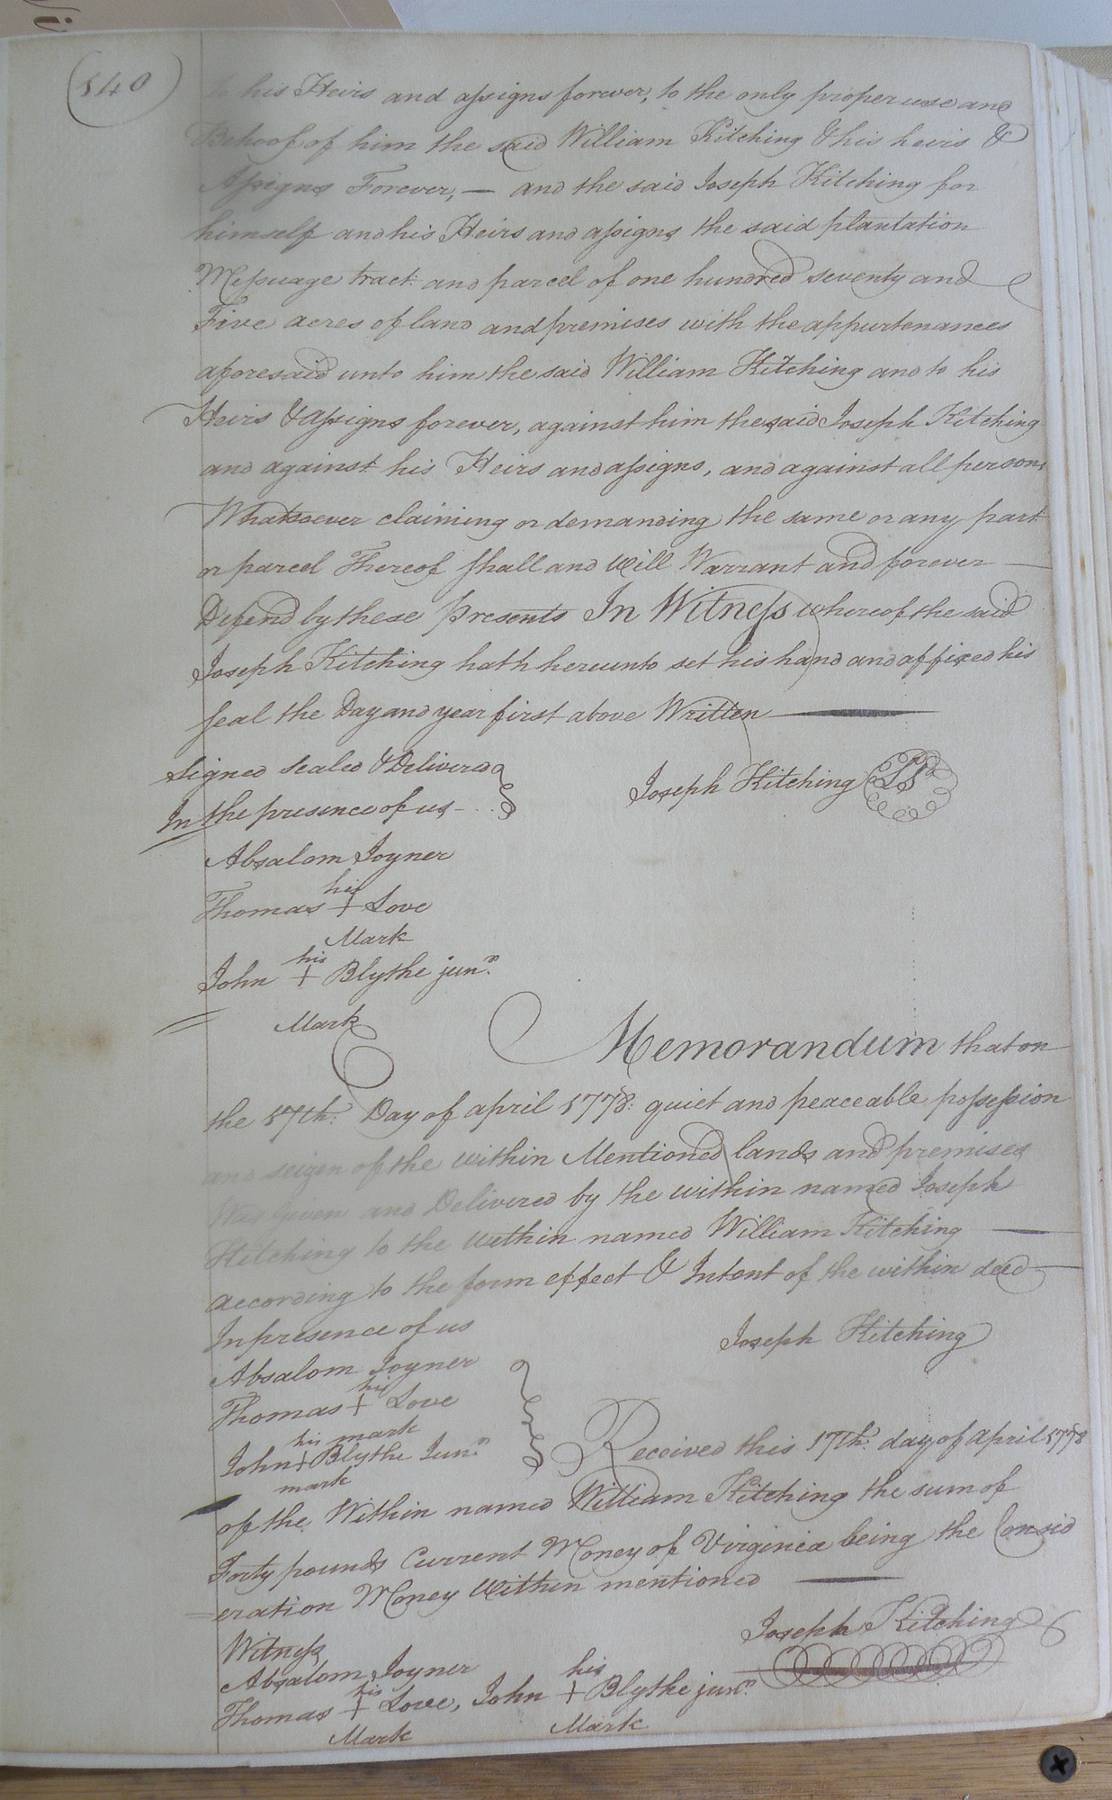 (140)
to his Heirs and assigns forever, to the only proper use and
Behoof of him the said William Kitching & his heirs &
Assigns Forever, — and the said Joseph Kitching for
himself and his Heirs and assigns the said plantation
Messuage tract and parcel of one hundred seventy and
Five acres of land and premises with the appurtenances
aforesaid unto him the said William Kitching and to his
Heirs & assigns forever, against him the said Joseph Kitching
and against his Heirs and assigns, and against all persons
Whatsoever claiming or demanding the same or any part
or parcel Thereof shall and will Warrant and forever
Defend by these Presents In Witness whereof the said
Joseph Kitching hath hereunto set his hand and affixed his
seal the Day and year first above Written
Signed sealed & Delivered
In the presence of us
Joseph Kitching LS
Absalom Joyner
his
Thomas + Love
Mark
his
John + Blythe junr.
Mark
Memorandum that on
the 17th. Day of april 1778: quiet and peaceable possession
and seizen of the within Mentioned lands and premises
Was Given and Delivered by the within named Joseph
Kitching to the within named William Kitching
according to the form effect & Intent of the within deed
In presence of us
Joseph Kitching
Absalom Joyner
his
Thomas + Love
his mark
John + Blythe Junr.
mark
Received this 17th. day of April 1778
of the Within named William Kitching the sum of
Forty pounds Current Money of Virginia being the Consid
eration Money Within mentioned
Joseph Kitching
Witness
Absalom Joyner
his his
Thomas + Love, John + Blythe junr.
Mark Mark